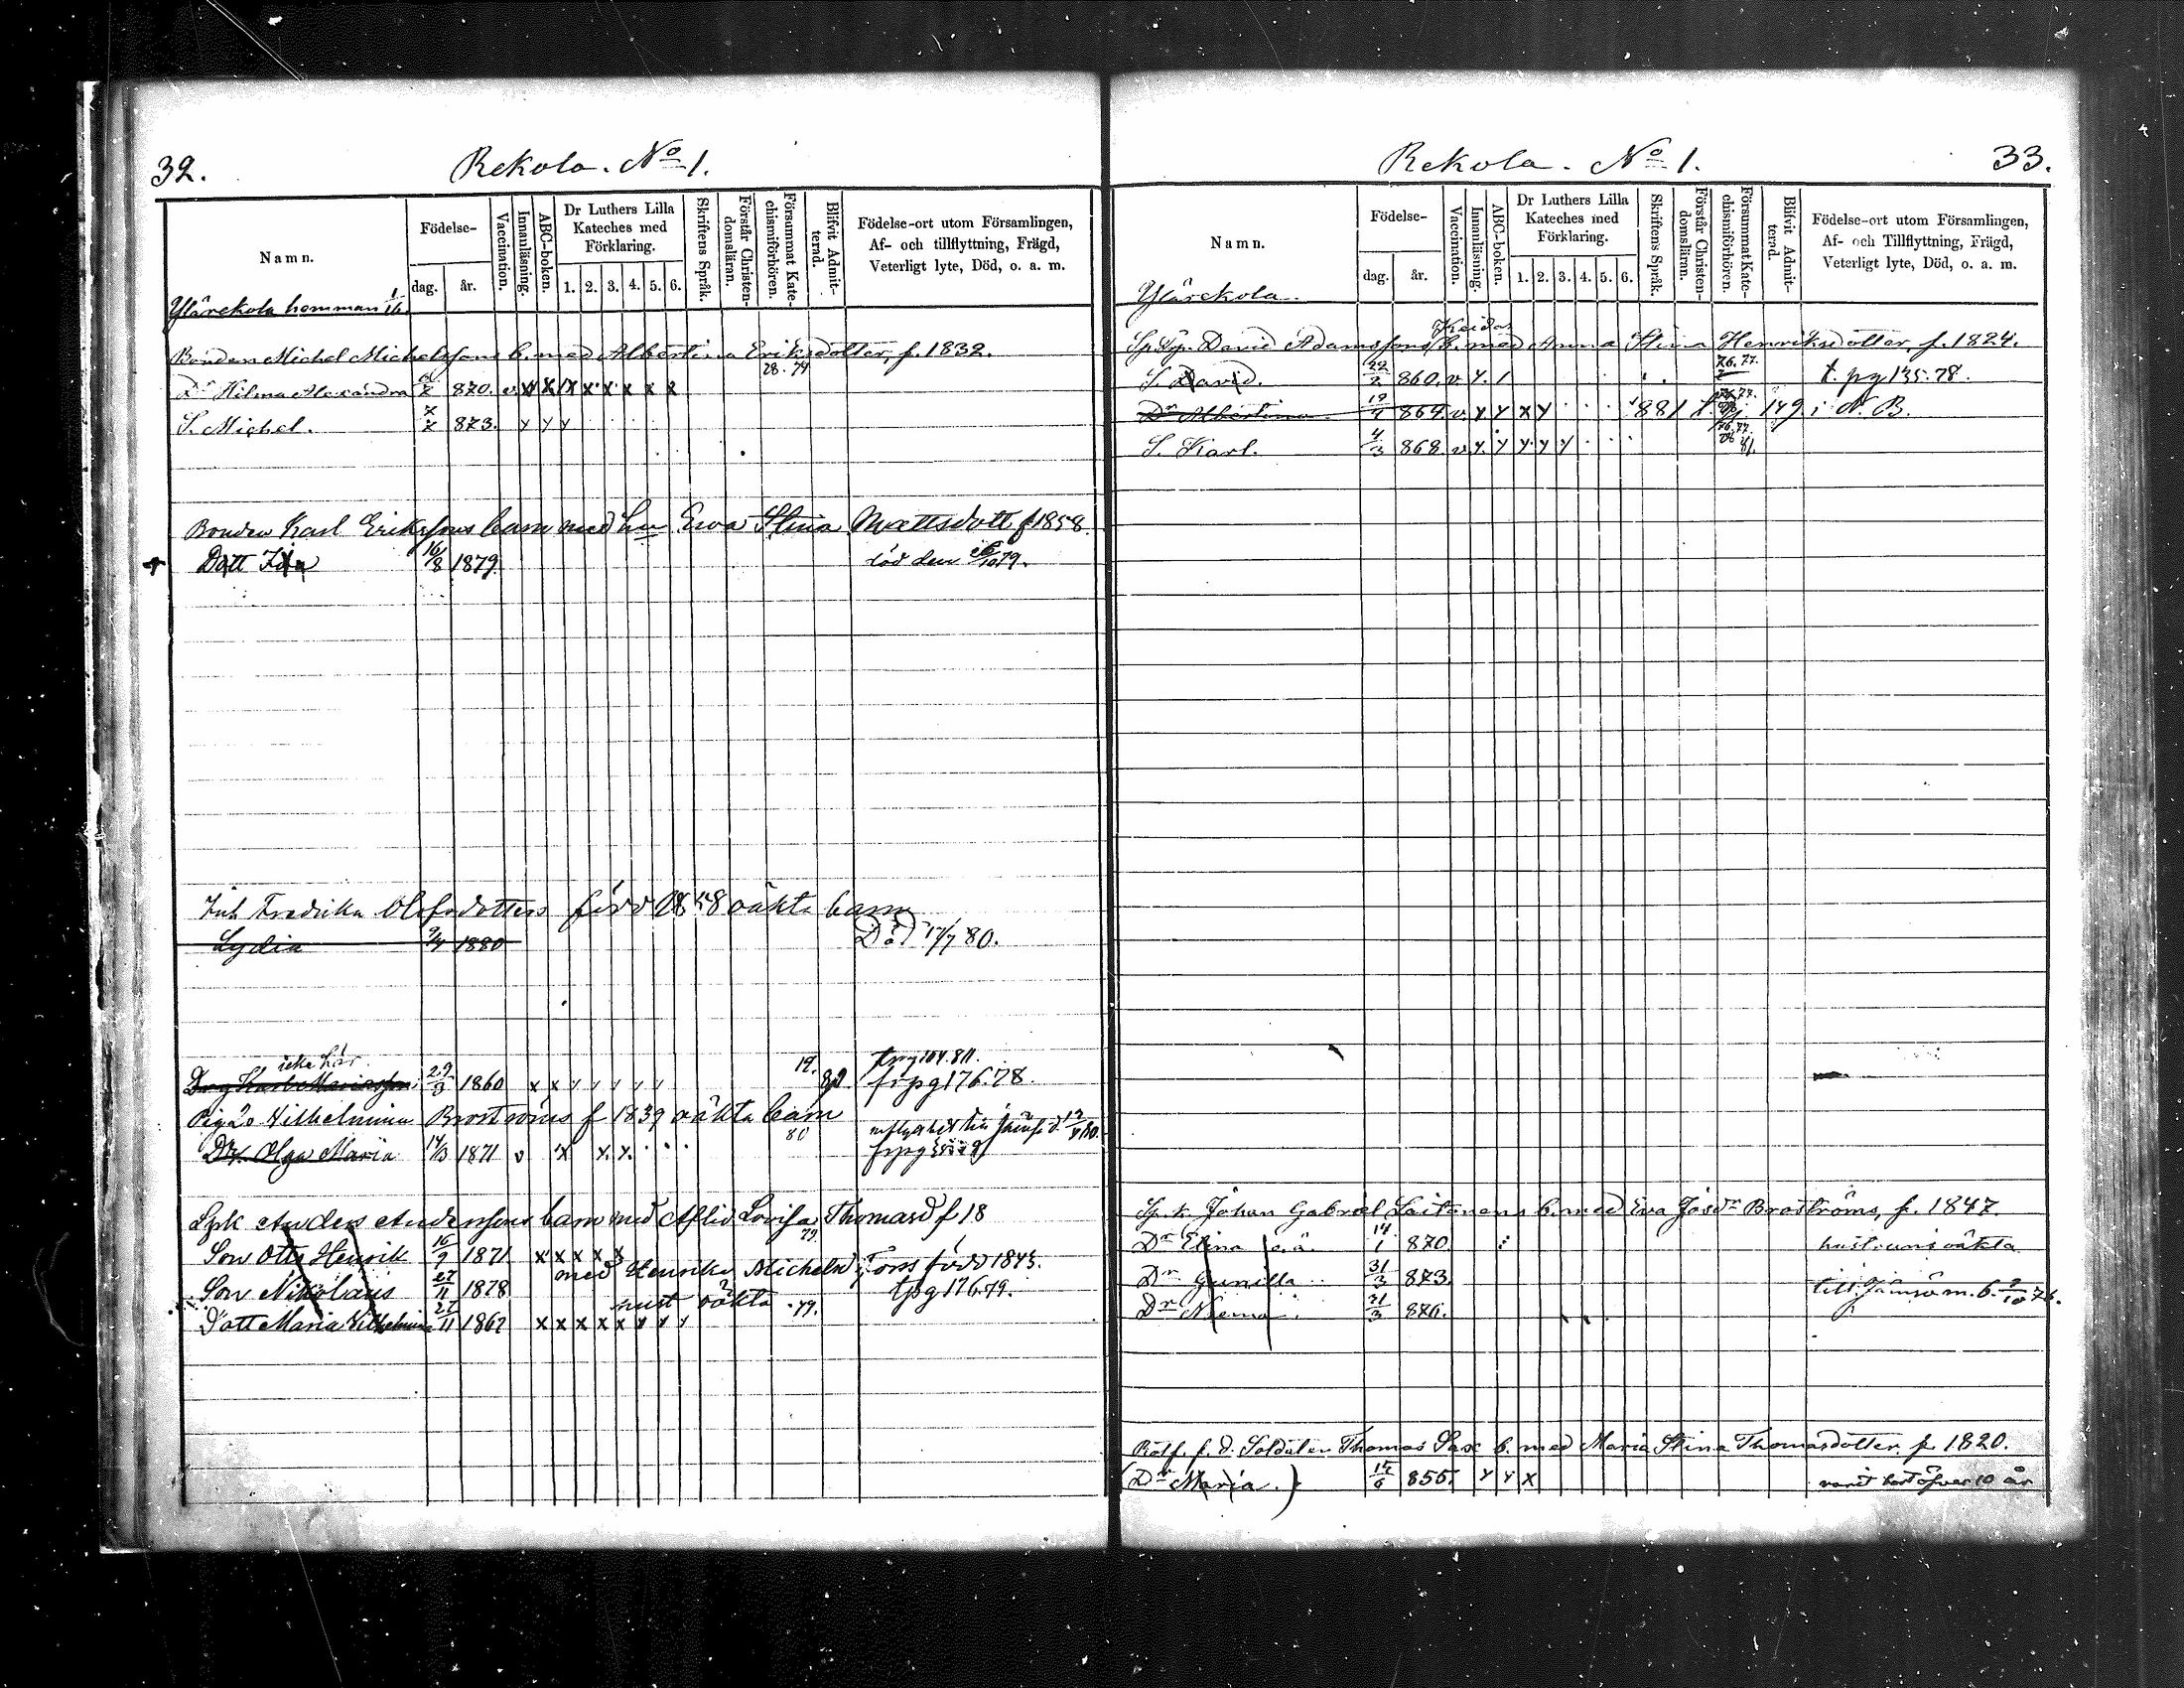 32.
Rekola. No 1.
Namn.
Födelse-
dag.
år.
Vaccination.
Innanläsning.
ABC-boken.
Dr Luthers Lilla Kateches med Förklaring.
1. 2. 3. 4. 5. 6.
Skriftens Språk.
Förstår Christendomsläran.
Försummat Katechismiförhören.
Blifvit Admitterad.
Födelse-ort utom Församlingen, Af- och tillflyttning, Frägd, Veterligt lyte, Död, o. a. m.
Ylärekola hemman 1/16.
Bonden Michel Michelssons b. med Albertina Eriksdotter, f. 1832.
Dr Hilma Alexandra 870. v x x x x x x x x
S. Michel. 873. y y y
Bonden Karl Erikssons barn med hu Ewa Stina Mattsdott f 1858
Dott Ida 16/8 1879 död den 79.
Inh Fredrika Olofsdotters född 1858 oäkta barn
Lydia 9/4 1880 Död 17/7 80.
icke här
1860 x x y y y y y 19. frpg 176.78.
Pig Wilhelmina Broströms f 1839 oäkta barn
Dr. Olga Maria 14/3 1871 v x x. x. 80
Spk Anders Anderssons barn med Aflid Lovisa Thomasd f 18
Son Otto Henrik 16/9 1871 x x x x x 79.
med Henrika Michelsd Tors född 1845.
Son Nikolaus 27/11 1878 tpg 176.79.
hust oäkta
Dott Maria Wilhelmina 27/11 1867 x x x x x y y y .79.
33.
Rekola. No 1.
Namn.
Födelse-
dag.
år.
Vaccination.
Innanläsning.
ABC-boken.
Dr Luthers Lilla Kateches med Förklaring.
1. 2. 3. 4. 5. 6.
Skriftens Språk.
Förstår Christendomsläran.
Försummat Katechismiförhören.
Blifvit Admitterad.
Födelse-ort utom Församlingen, Af- och Tillflyttning, Frägd, Veterligt lyte, Död, o. a. m.
Ylärekola.
David Adamssons b. med Anna Stina Henriksdotter, f. 1824.
S. David. 22/2 860. v y. 1 76.77. t. pg 135.78.
Dr Albertina 19/4 864. v y y x y 881 149 i N. B.
S. Karl. 4/3 868. v y. y y. y y 76.77. 81.
Sp. k. Johan Gabriel Laitonens b. med Eva Josdr Broströms, f. 1847.
Dr Elina o.ä. 14/1 870. hustruns oäkta
Dr Gunilla 31/3 873.
Dr Niema. 31/3 876. till Jämsä m. b. 2/10 76.
Rotf. f. d. Soldaten Thomas Sax b. med Maria Stina Thomasdotter, f. 1820.
(Dr Maria.) 15/6 855. y y x varit bort öfver 10 år